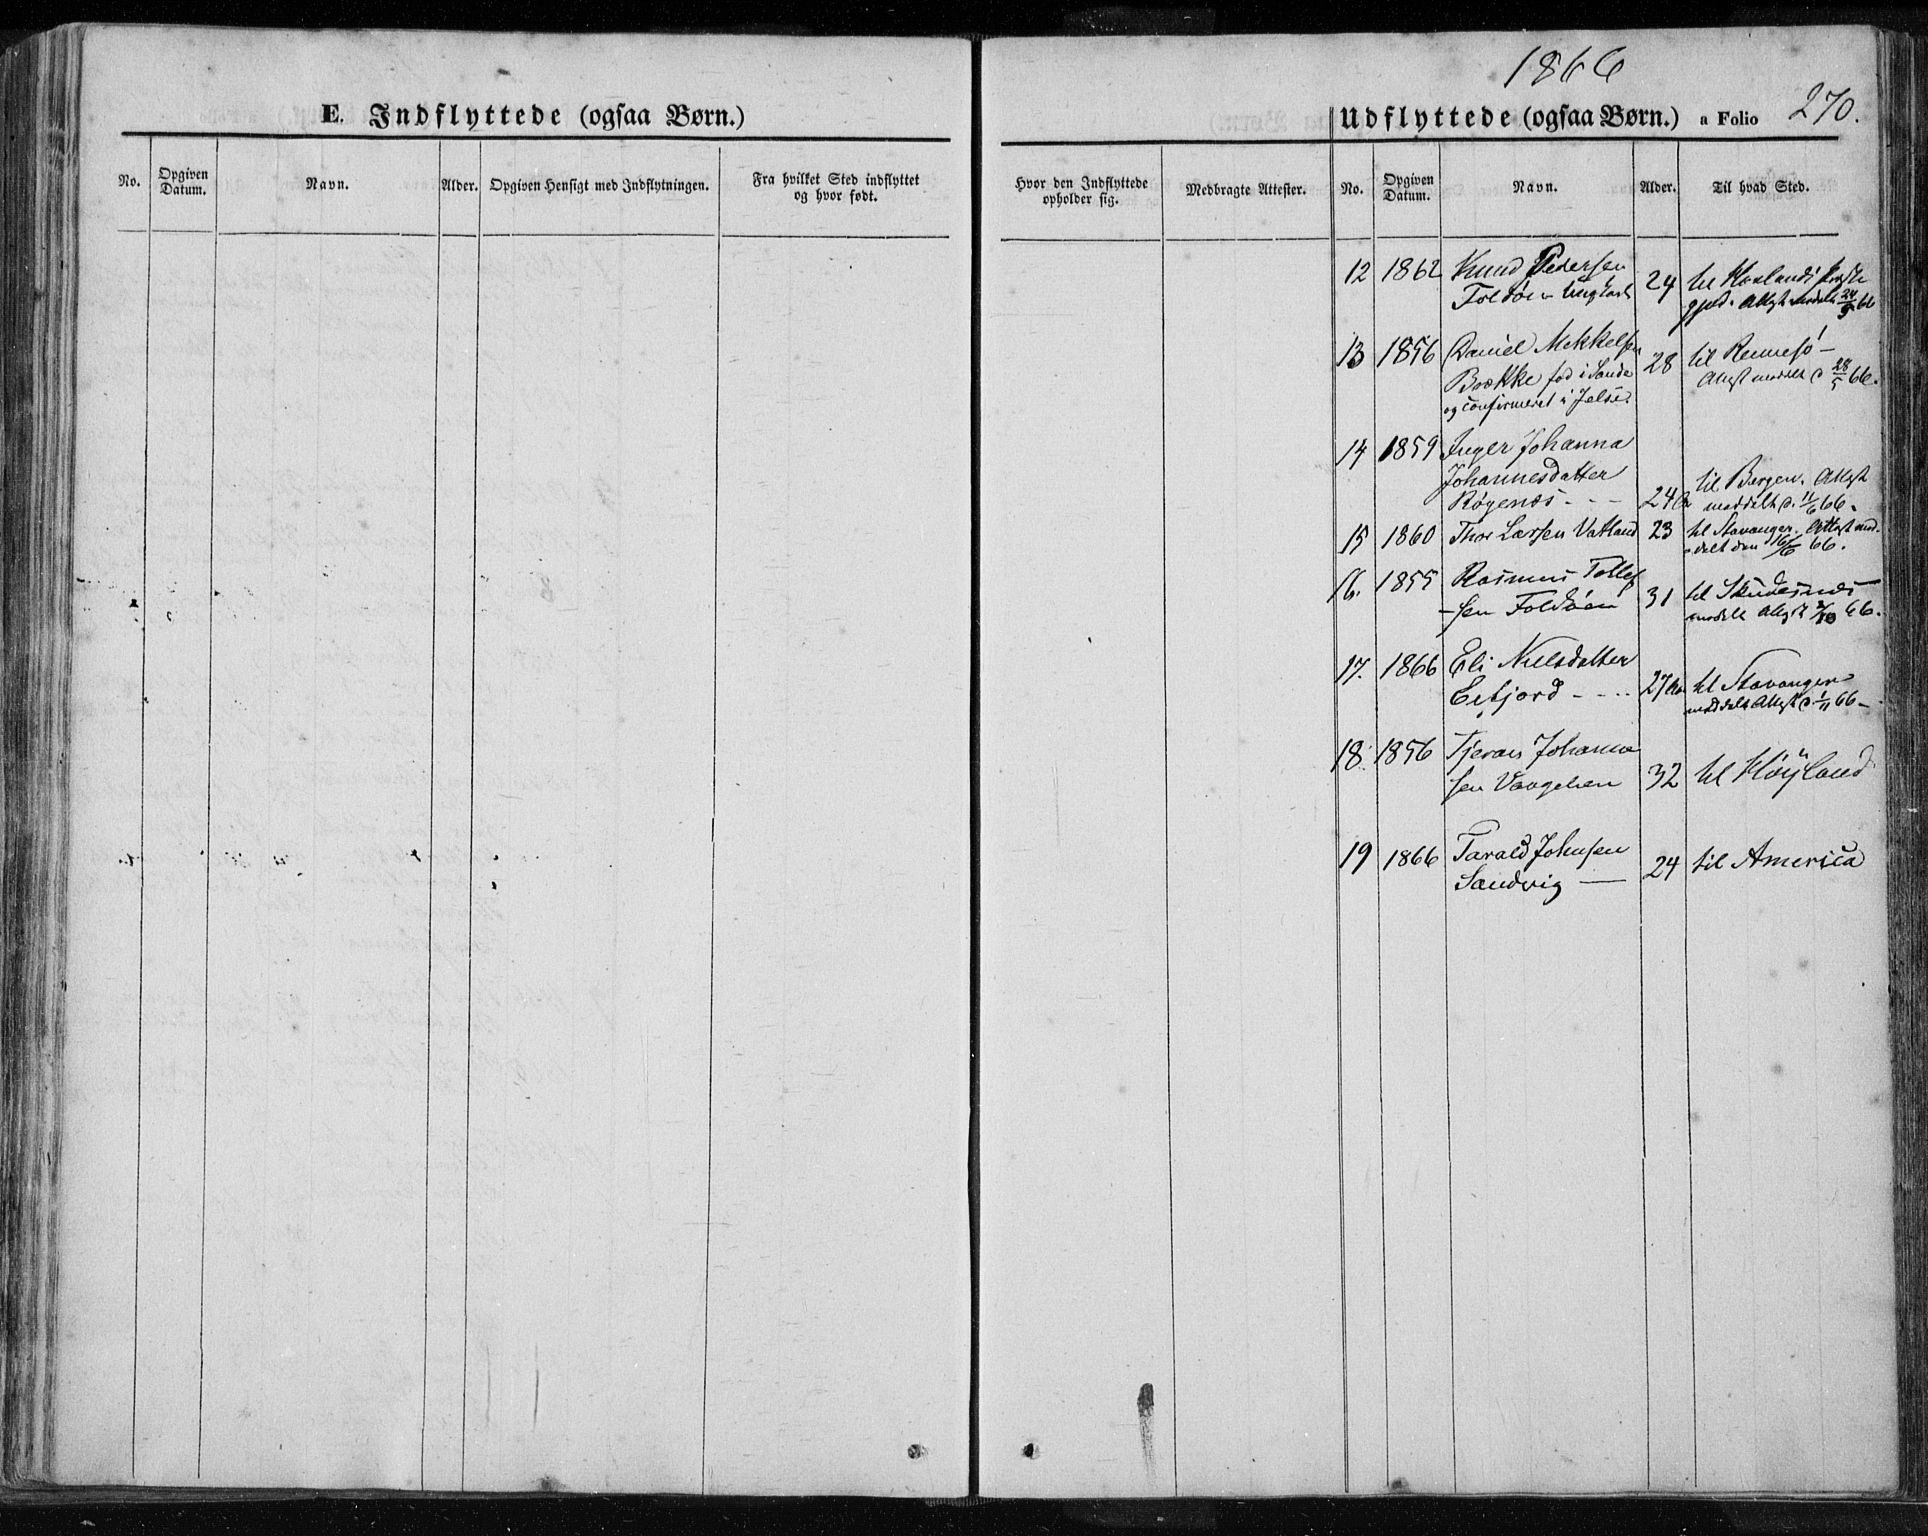 1866
E. Indflyttede (ogsaa Børn.)
Udflyttede (ogsaa Børn.) a Folio 270.
No. Opgiven Datum. Navn. Alder. Opgiven Hensigt med Indflytningen. Fra hvilket Sted indflyttet og hvor født.
Hvor den Indflyttede opholder sig. Medbragte Attester. No. Opgiven Datum. Navn. Alder. Til hvad Sted.
12 1862 Knud Pedersen
Foldøen Ungkarl 24 til Haalands Præste
gjed. Attest meddelt 24/5 66
13 1856 Daniel Mekkelsen 28 til Rennesø
Brække fød i Sande Attest meddelt d 28/5 66.
og confirmeret i Jelse.
14 1859 Inger Johanna
Johannesdatter til Bergen. Attest
Røgenes - - - 24 meddelt d. 11/6 66.
15 1860 Thor Larsen Vatland 23 til Stavanger. Attest med-
delt den 16/6 66.
16. 1855 Rasmus Tollef
-sen Foldøen 31 til Skudesnes
meddelt Attest 66.
17. 1866 Eli Nielsdatter
Eifjord - - - - 27 Aar til Stavanger
meddelt Attest d. 1/11 66 -
18. 1856 Tjeran Johanne
sen 32 til Høyland
19 1866 Tarald Johnsen
Sandvig — 24 til America